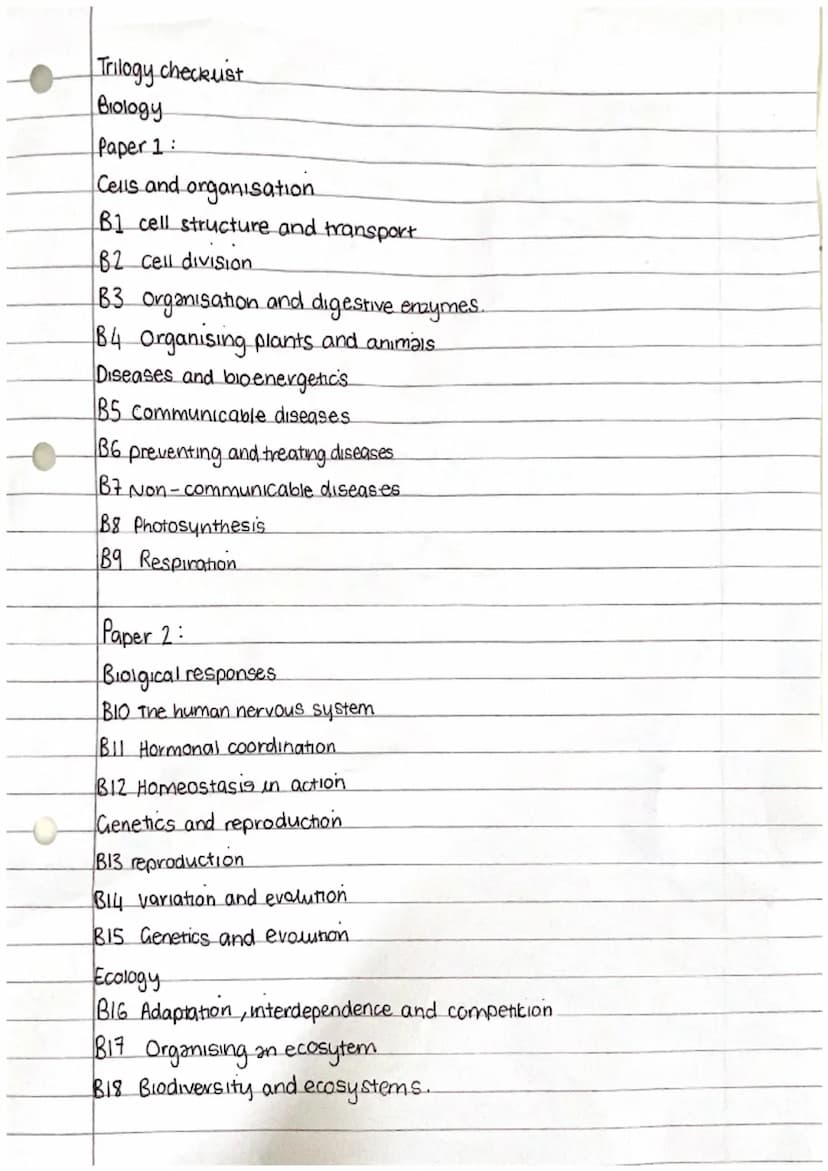 Trilogy checklist
Biology
Paper 1:
Cells and organisation
B1 cell structure and transport
B2 cell division
B3 Organisation and digestive enzymes.
B4 Organising plants and animals
Diseases and bioenergetics
B5 Communicable diseases
B6 preventing and treating diseases
B7 Non-communicable diseases
B8 Photosynthesis
B9 Respiration
Paper 2:
Biolgical responses
B10 The human nervous system
B11 Hormonal coordination
B12 Homeostasis in action
Genetics and reproduction
B13 reproduction
B14 variation and evolution
B15 Genetics and evolution
Ecology
B16 Adaptation, interdependence and competition
B17 Organising an ecosytem
B18 Biodiversity and ecosystems.